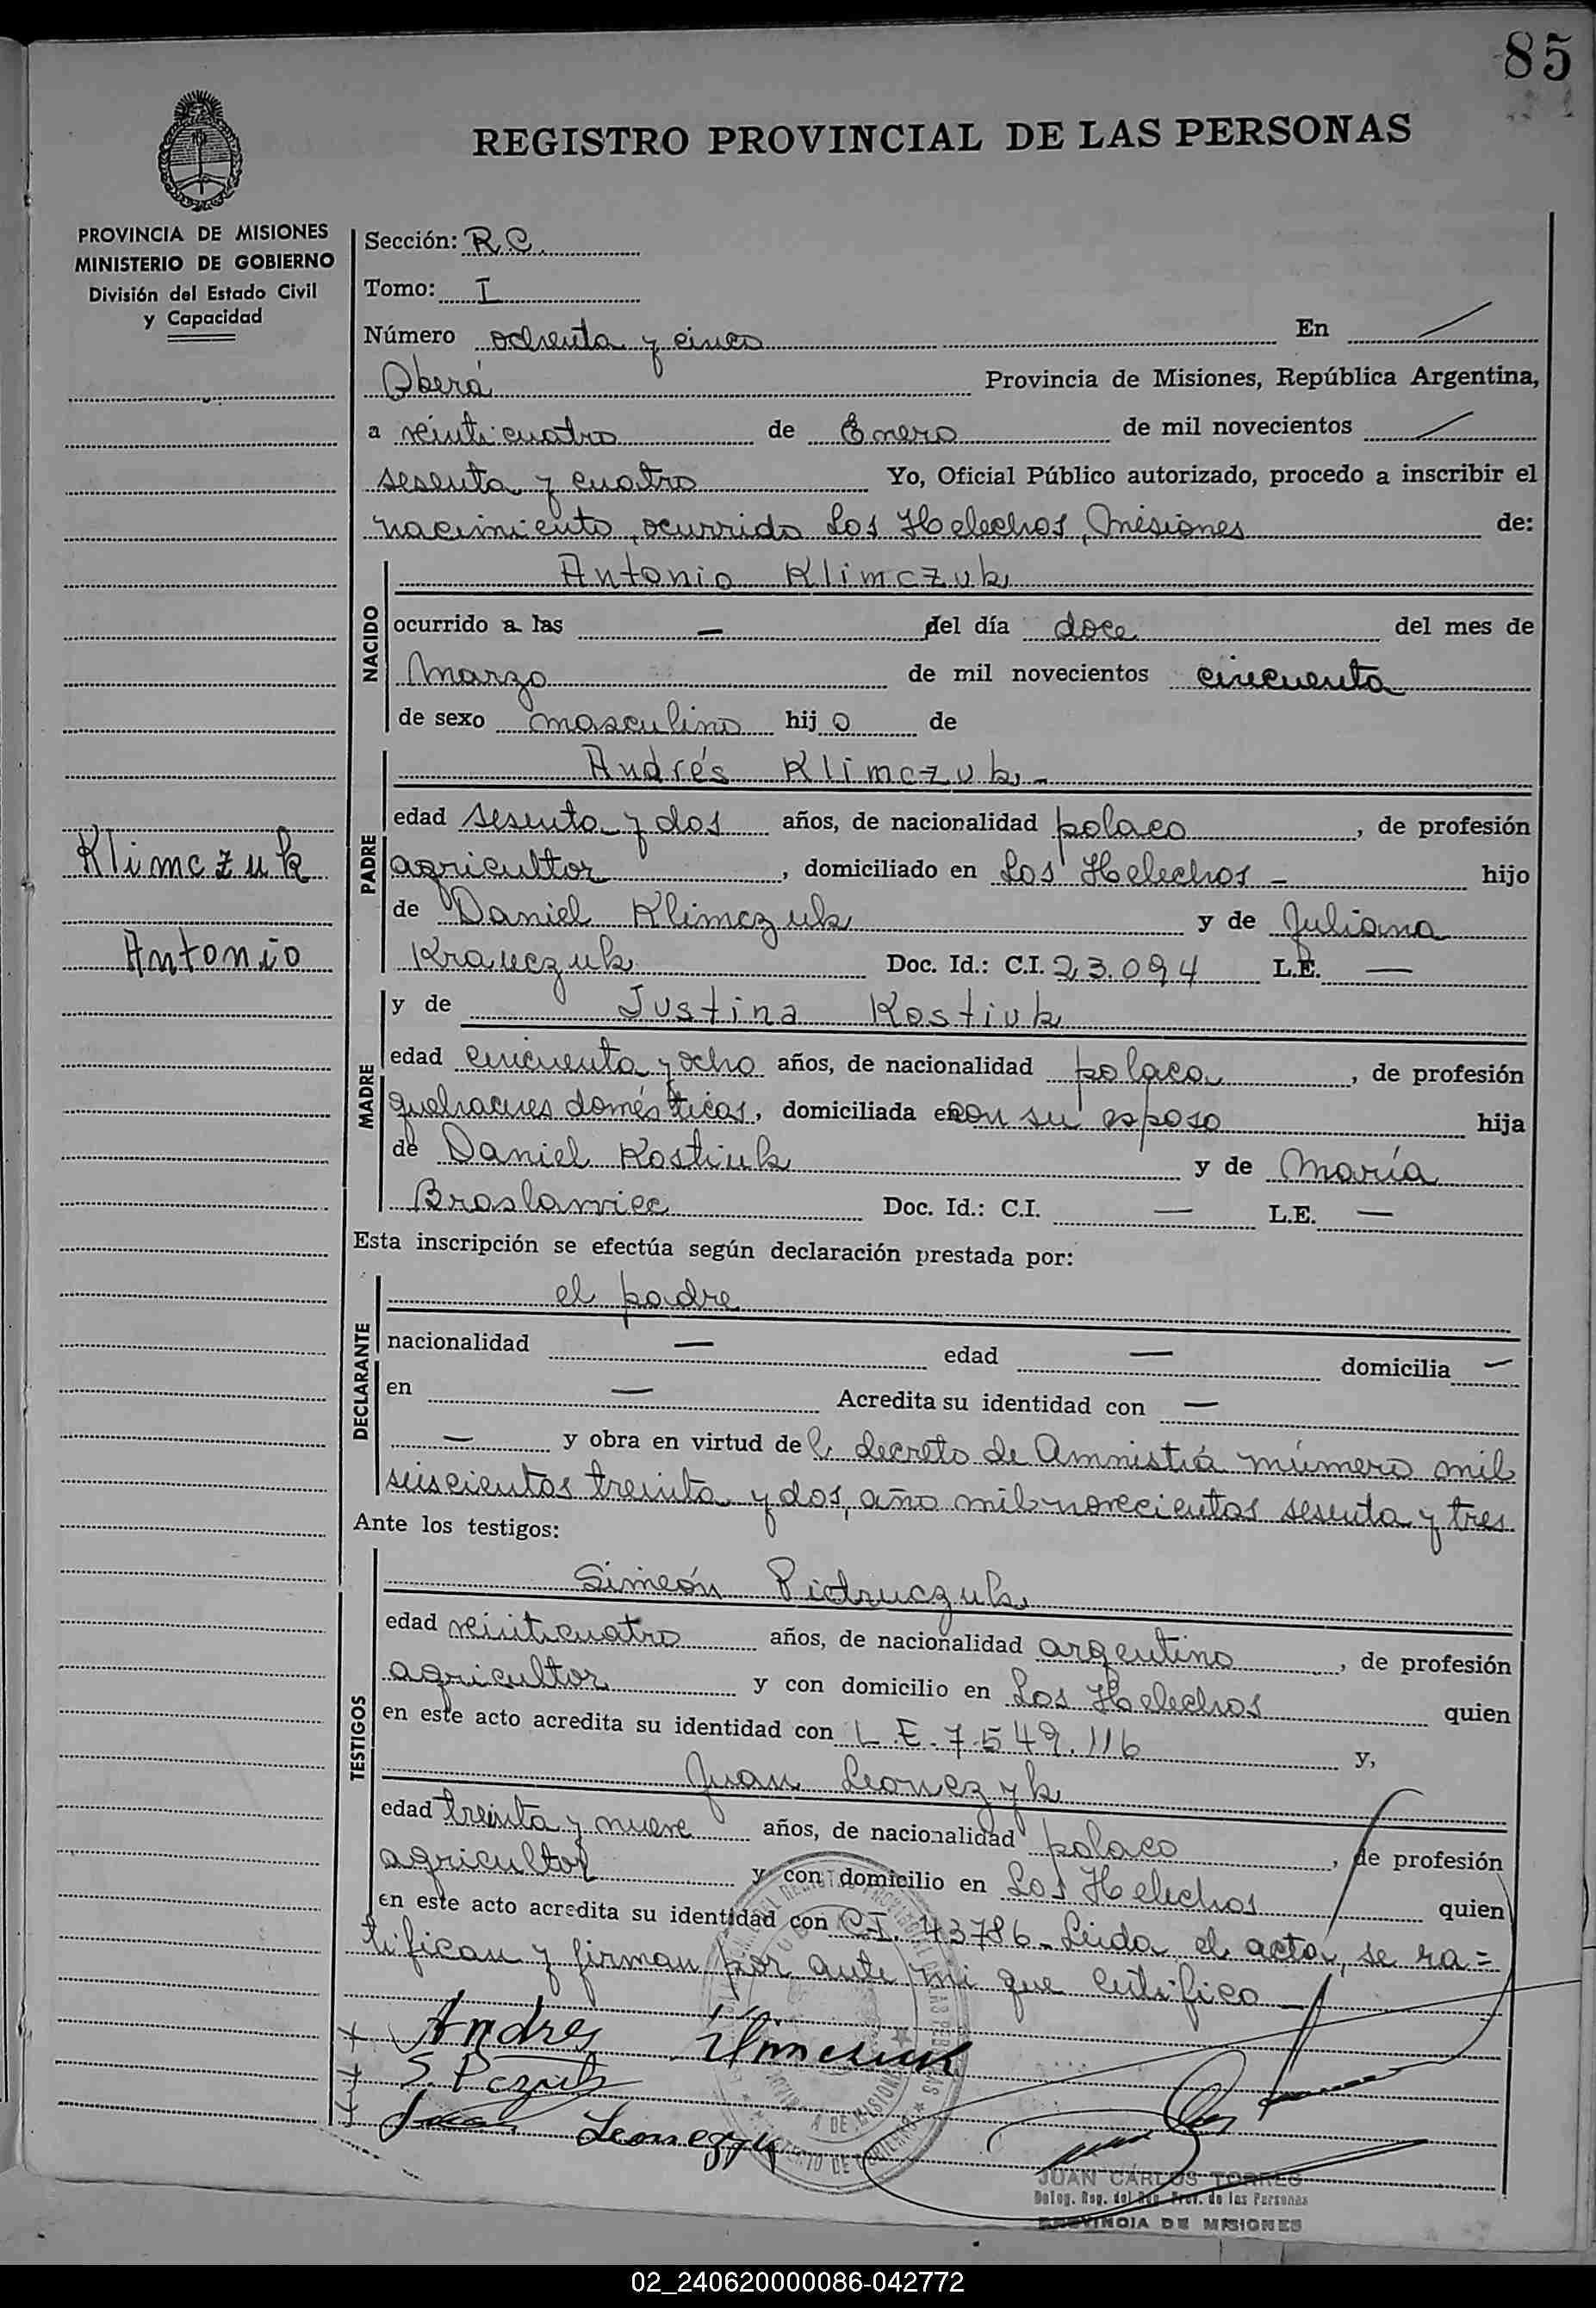 85
REGISTRO PROVINCIAL DE LAS PERSONAS
PROVINCIA DE MISIONES
MINISTERIO DE GOBIERNO
División del Estado Civil
y Capacidad
Sección: R.C.
Tomo: I
Número ochenta y cinco En
Oberá Provincia de Misiones, República Argentina,
a veinticuatro de Enero de mil novecientos
sesenta y cuatro Yo, Oficial Público autorizado, procedo a inscribir el
nacimiento, ocurrido Los Helechos, Misiones de:
NACIDO
Antonio Klimczuk
ocurrido a las — del día doce del mes de
Marzo de mil novecientos cincuenta
de sexo masculino hijo de
PADRE
Andrés Klimczuk.-
edad sesenta y dos años, de nacionalidad polaco, de profesión
agricultor, domiciliado en Los Helechos - hijo
de Daniel Klimczuk y de Juliana
Krauczuk Doc. Id.: C.I. 23.094 L.E. —
Klimczuk
Antonio
MADRE
y de Justina Kostiuk
edad cincuenta y ocho años, de nacionalidad polaca, de profesión
quehaceres domésticos, domiciliada en con su esposo hija
de Daniel Kostiuk y de María
Braslawiec Doc. Id.: C.I. — L.E. —
Esta inscripción se efectúa según declaración prestada por:
DECLARANTE
el padre
nacionalidad — edad — domicilia —
en — Acredita su identidad con —
— y obra en virtud del decreto de Amnistía número mil
seiscientos treinta y dos, año mil novecientos sesenta y tres
Ante los testigos:
TESTIGOS
Simeón Pidruczuk
edad veinticuatro años, de nacionalidad argentino, de profesión
agricultor y con domicilio en Los Helechos quien
en este acto acredita su identidad con L.E. 7.549.116 y,
Juan Leonczyk
edad treinta y nueve años, de nacionalidad polaco, de profesión
agricultor y con domicilio en Los Helechos quien
en este acto acredita su identidad con C.I. 43786. Leida el acta, se ra=
tifican y firman por ante mi que certifico —
Andres
Juan Leonczyk
JUAN CARLOS TORRES
Deleg. Reg. del Reg. Prov. de las Personas
PROVINCIA DE MISIONES
02_240620000086-042772